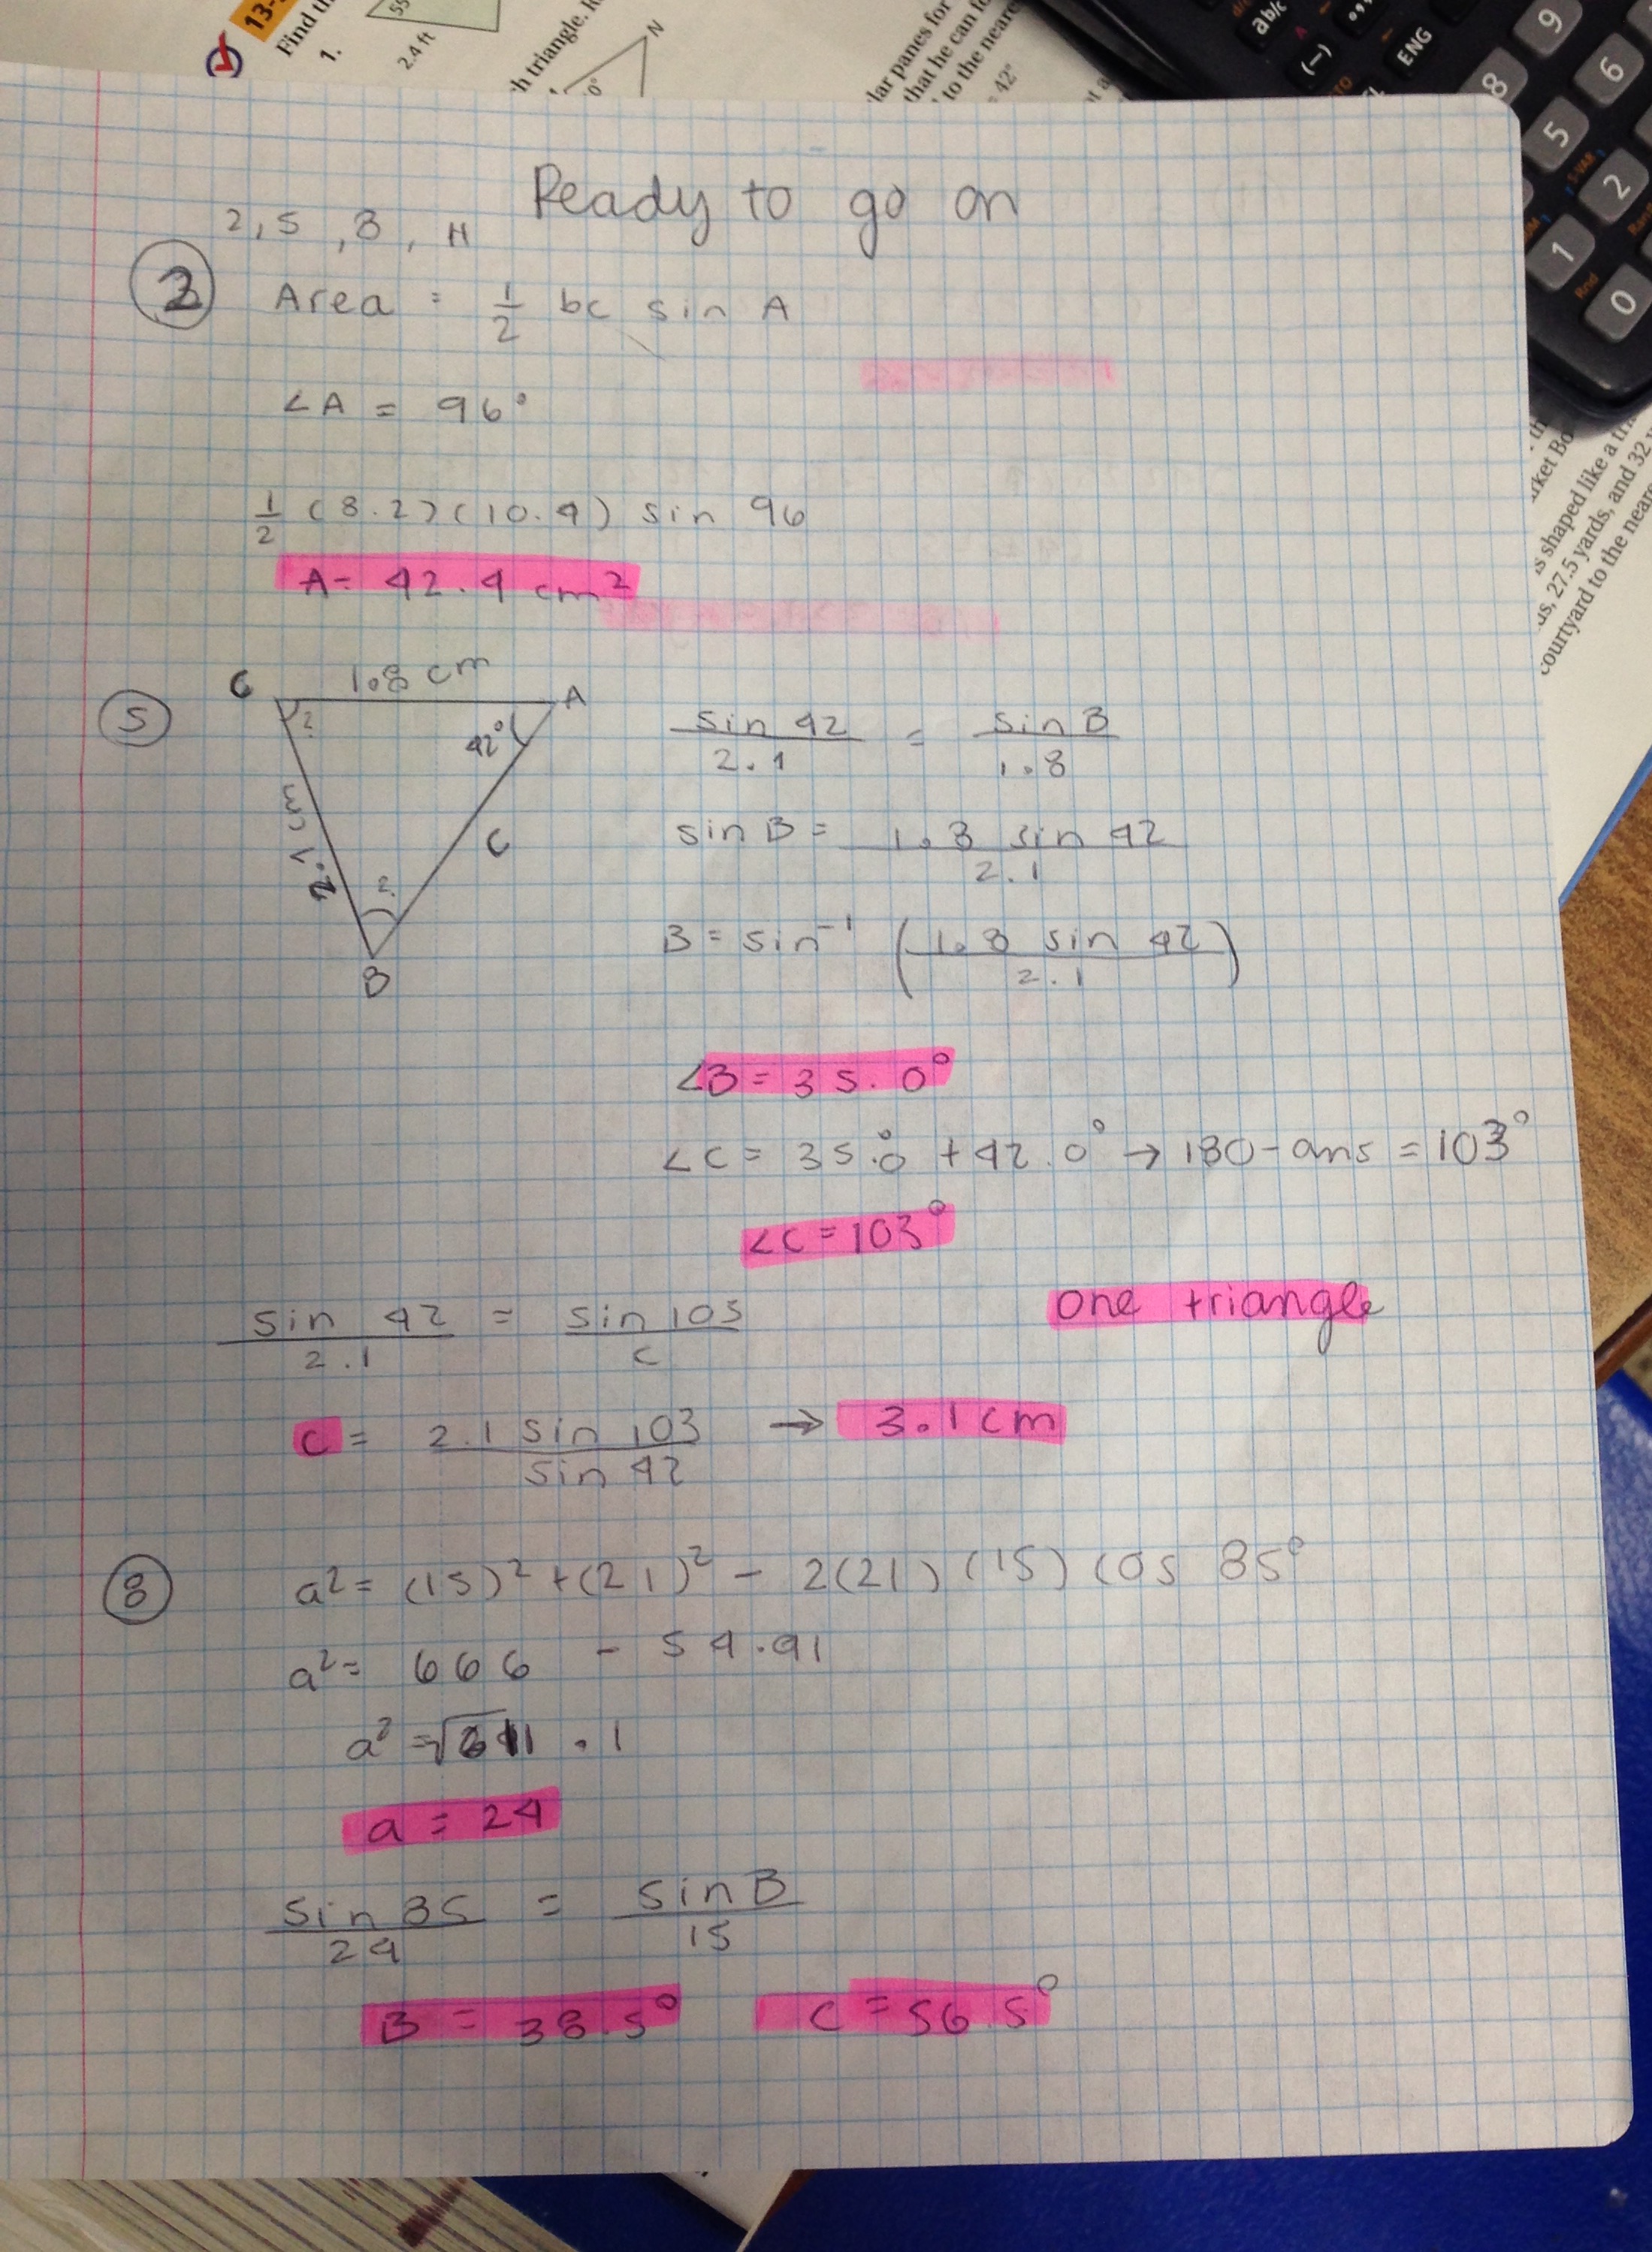 13-
Find th
1.
55
2.4 ft
h triangle. R
N
0°
lar panes for
that he can fo
to the neare
= 42°
ab/c
(−)
ENG
9
8
6
5
2
1
0
Rnd
S-VAR
Ready to go on
2, 5, 8, 11
2 Area = 1/2 bc sin A
∠A = 96°
1/2 (8.2)(10.4) sin 96
A = 42.4 cm²
5
C 1.8 cm A
? 42°
2.1 cm c
?
B
sin 42 / 2.1 = sin B / 1.8
sin B = 1.8 sin 42 / 2.1
B = sin⁻¹ (1.8 sin 42 / 2.1)
∠B = 35.0°
∠C = 35.0° + 42.0° → 180 - ans = 103°
∠C = 103°
one triangle
sin 42 / 2.1 = sin 103 / c
c = 2.1 sin 103 / sin 42 → 3.1 cm
8 a² = (15)² + (21)² - 2(21)(15) cos 85°
a² = 666 - 54.91
a² = √611.1
a = 24
sin 85 / 24 = sin B / 15
B = 38.5° C = 56.5°
rket Bo
is shaped like a tri
us, 27.5 yards, and 32
courtyard to the neare